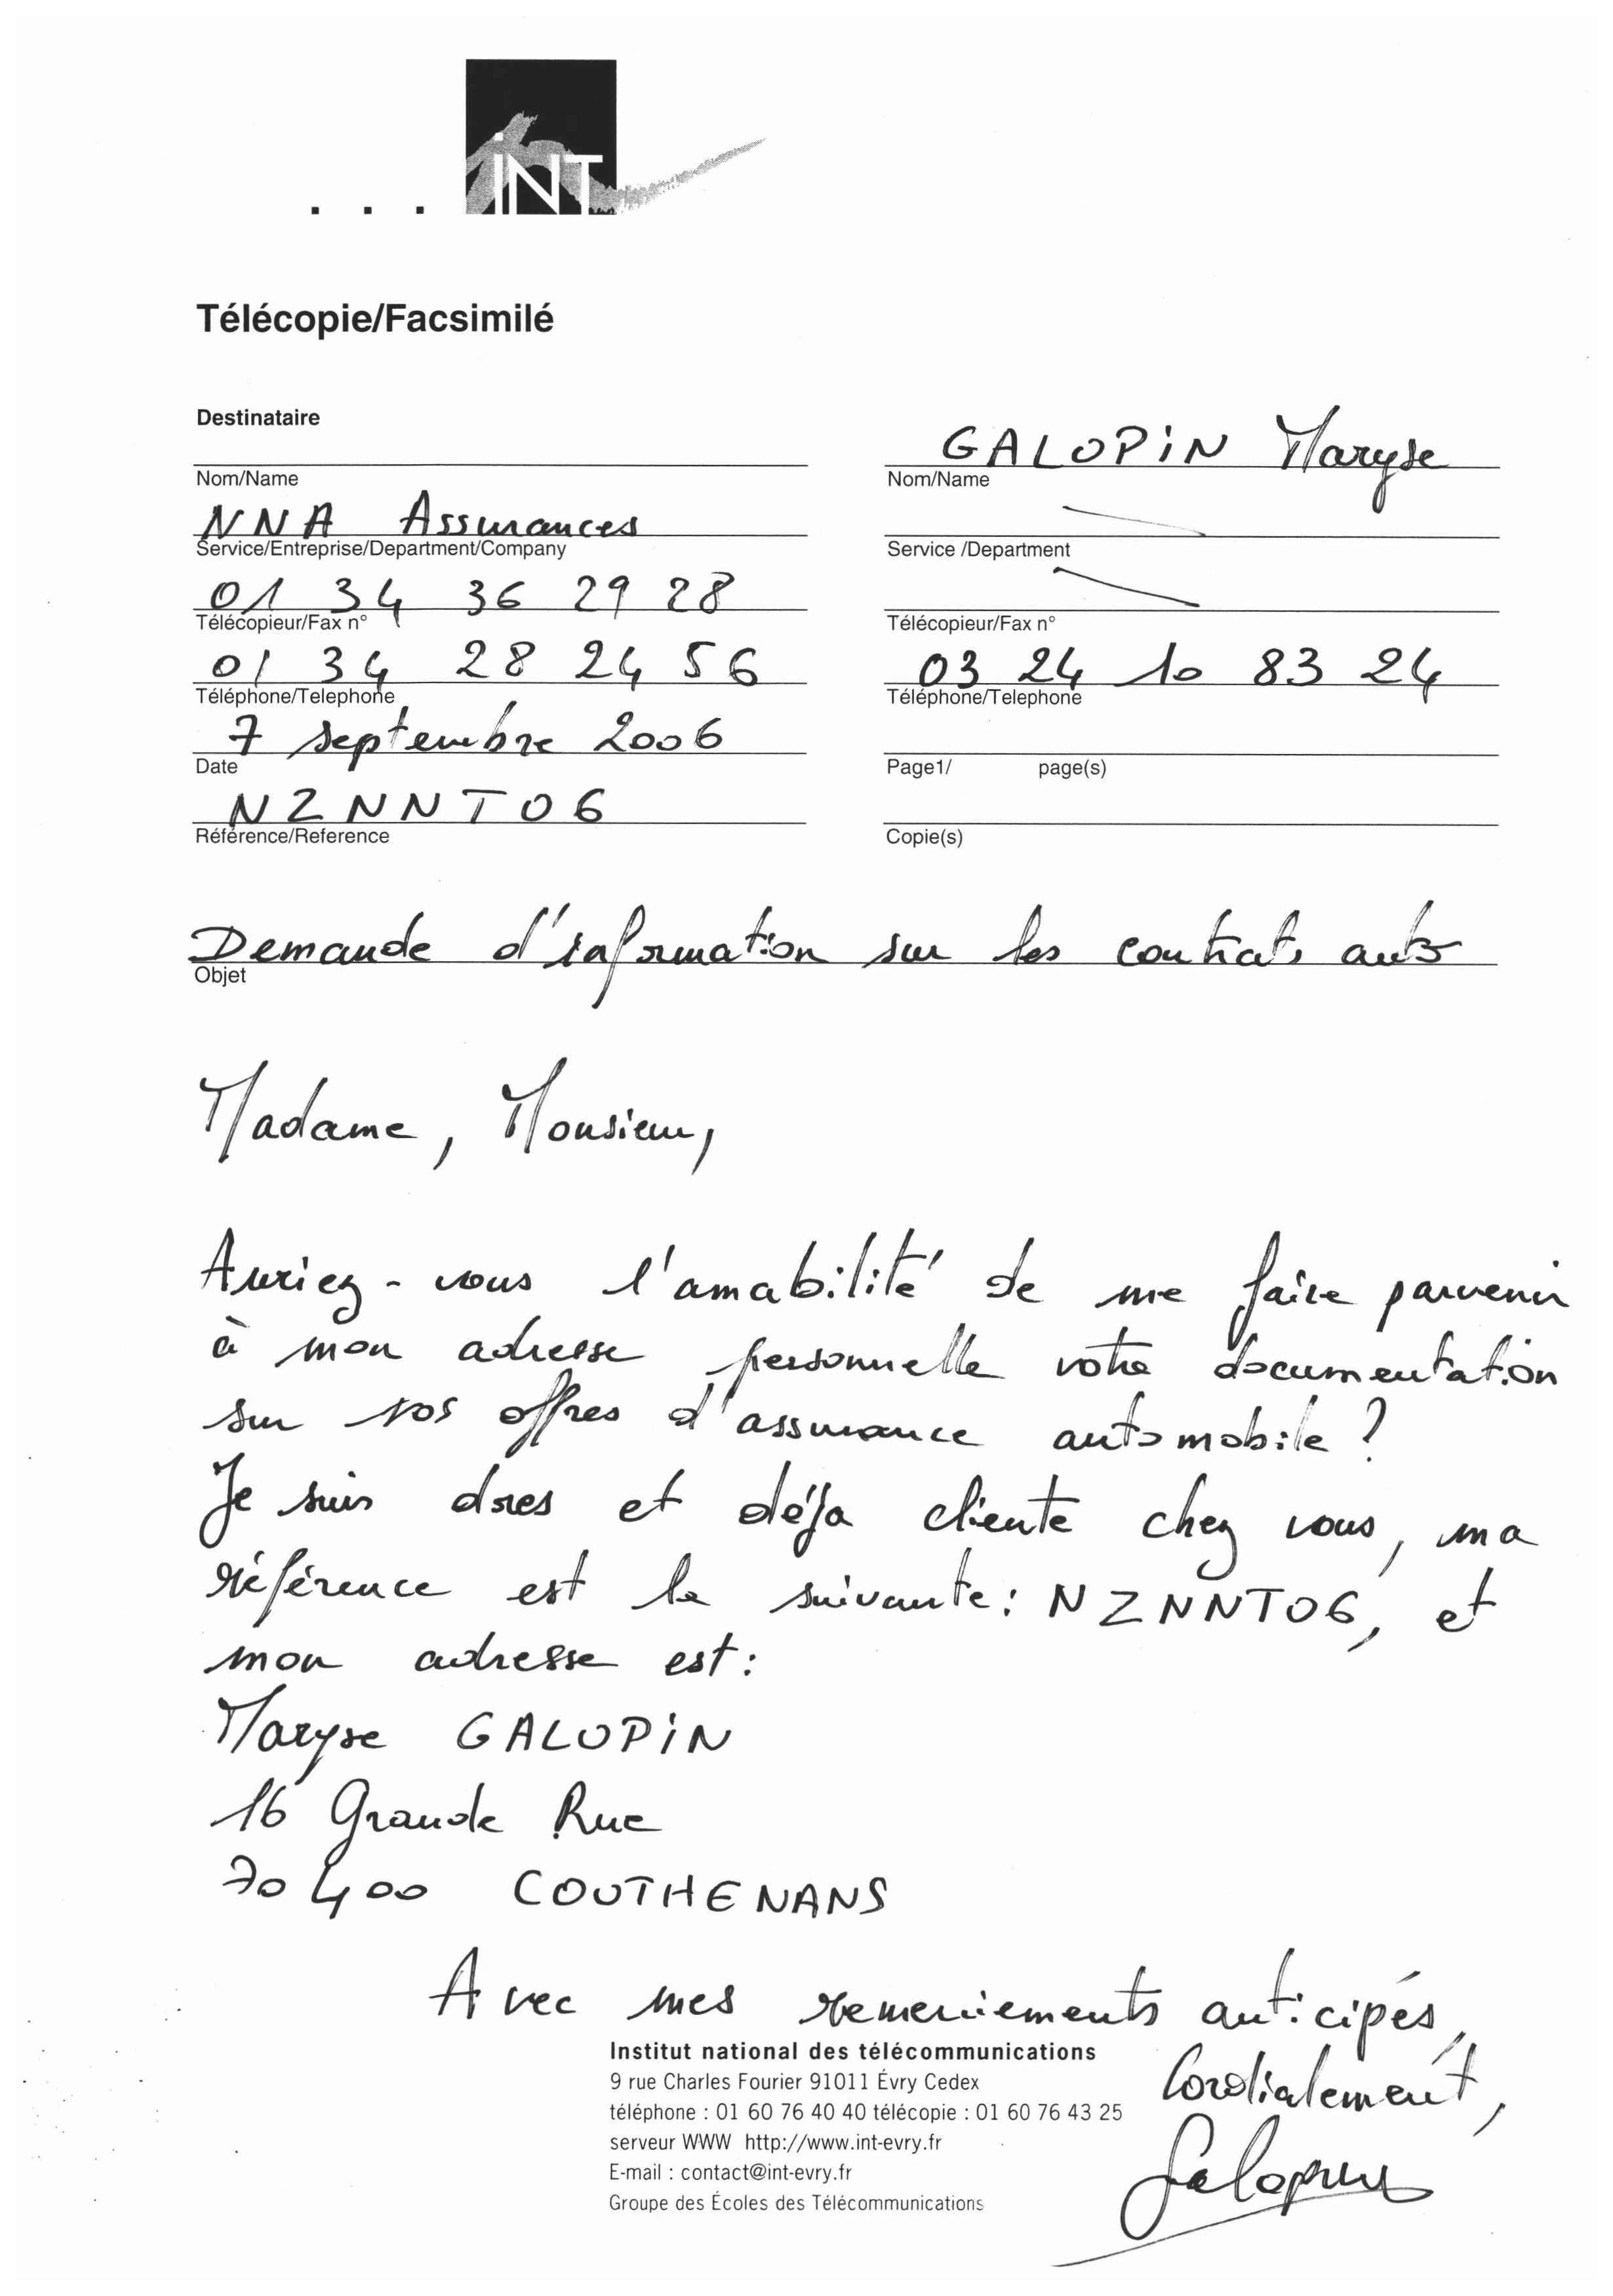 ... iNT
Télécopie/Facsimilé
Destinataire
Nom/Name
NNA Assurances
Service/Entreprise/Department/Company
01 34 36 29 28
Télécopieur/Fax n°
01 34 28 24 56
Téléphone/Telephone
7 septembre 2006
Date
NZNNT06
Référence/Reference
GALOPIN Maryse
Nom/Name
Service /Department
Télécopieur/Fax n°
03 24 10 83 24
Téléphone/Telephone
Page1/ page(s)
Copie(s)
Demande d'information sur les contrats auto
Objet
Madame, Monsieur,
Auriez-vous l'amabilité de me faire parvenir
à mon adresse personnelle votre documentation
sur vos offres d'assurance automobile ?
Je suis dores et déjà cliente chez vous, ma
référence est la suivante : NZNNT06, et
mon adresse est :
Maryse GALOPIN
16 Grande Rue
70400 COUTHENANS
Avec mes remerciements anticipés,
Cordialement,
Galopin
Institut national des télécommunications
9 rue Charles Fourier 91011 Évry Cedex
téléphone : 01 60 76 40 40 télécopie : 01 60 76 43 25
serveur WWW http://www.int-evry.fr
E-mail : contact@int-evry.fr
Groupe des Écoles des Télécommunications